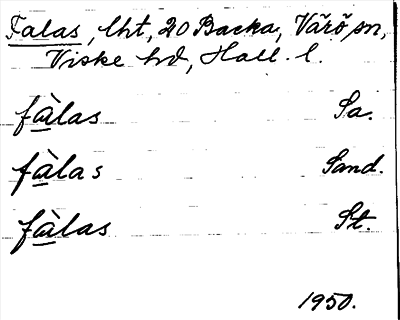 Falas, lht, 20 Backa, Värö sn,
Viske hd, Hall. l.
fàlas Sa.
fàlas Sand.
fàlas St.
1950.